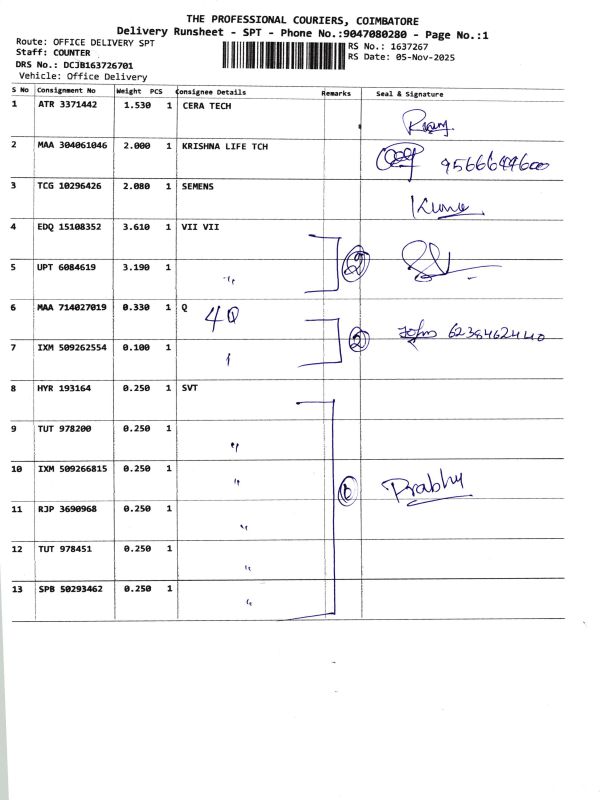 THE PROFESSIONAL COURIERS, COIMBATORE
Delivery Runsheet - SPT - Phone No.:9047080280 - Page No.:1
Route: OFFICE DELIVERY SPT
Staff: COUNTER
DRS No.: DCJB163726701
Vehicle: Office Delivery
RS No.: 1637267
RS Date: 05-Nov-2025
S No Consignment No Weight PCS Consignee Details Remarks Seal & Signature
1 ATR 3371442 1.530 1 CERA TECH
2 MAA 304061046 2.000 1 KRISHNA LIFE TCH 9566644600
3 TCG 10296426 2.080 1 SEMENS Kuma
4 EDQ 15108352 3.610 1 VII VII
5 UPT 6084619 3.190 1 "
2
6 MAA 714027019 0.330 1 Q 4Q
7 IXM 509262554 0.100 1 "
2 John 6238462440
8 HYR 193164 0.250 1 SVT
9 TUT 978200 0.250 1 "
10 IXM 509266815 0.250 1 " Prabhu
11 RJP 3690968 0.250 1 "
12 TUT 978451 0.250 1 "
13 SPB 50293462 0.250 1 "